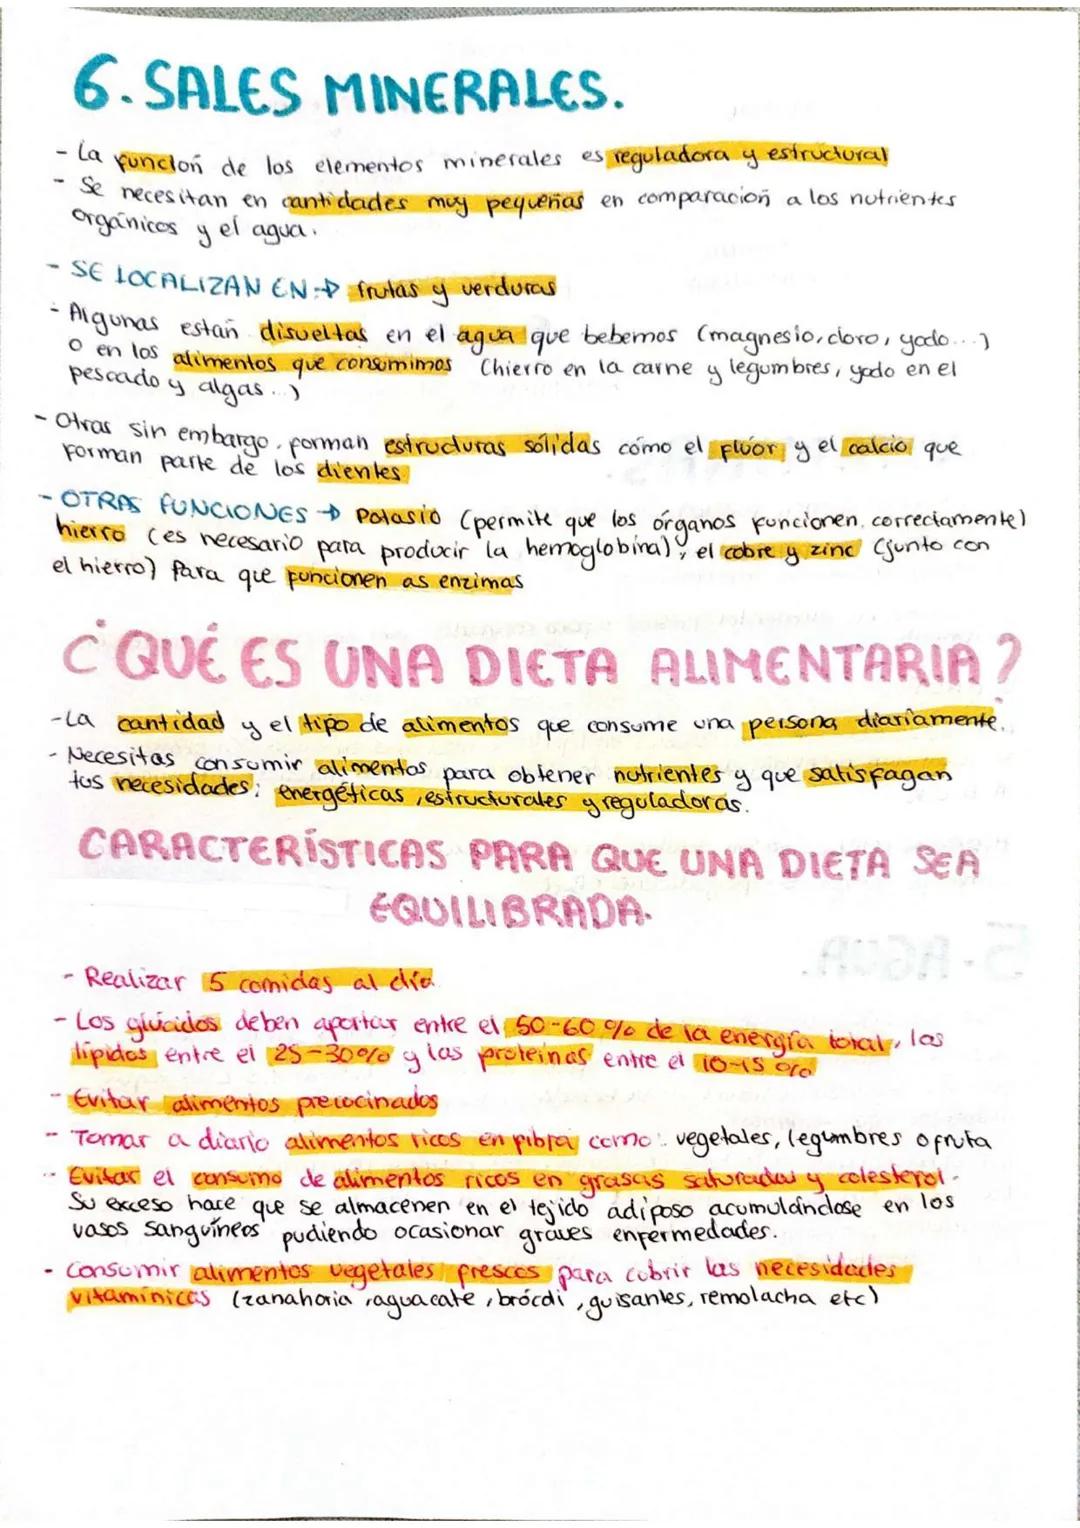 6. SALES MINERALES.
- La función de los elementos minerales es reguladora y estructural
- Se necesitan en cantidades muy pequeñas en comparación a los nutrientes
orgánicos y el agua.
- SE LOCALIZAN EN → frutas y verduras
- Algunas están disueltas en el agua que bebemos (magnesio, cloro, yodo...)
o en los alimentos que consumimos (hierro en la carne y legumbres, yodo en el
pescado y algas...)
- Otras sin embargo, forman estructuras sólidas como el flúor y el calcio que
forman parte de los dientes
- OTRAS FUNCIONES → Potasio (permite que los órganos funcionen correctamente)
hierro (es necesario para producir la hemoglobina), el cobre y zinc (junto con
el hierro) para que funcionen as enzimas
¿QUÉ ES UNA DIETA ALIMENTARIA?
- La cantidad y el tipo de alimentos que consume una persona diariamente.
- Necesitas consumir alimentos para obtener nutrientes y que satisfagan
tus necesidades; energéticas, estructurales y reguladoras.
CARACTERÍSTICAS PARA QUE UNA DIETA SEA
EQUILIBRADA.
- Realizar 5 comidas al día
- Los glúcidos deben aportar entre el 50-60% de la energía total, los
lípidos entre el 25-30% y las proteínas entre el 10-15%
- Evitar alimentos precocinados
- Tomar a diario alimentos ricos en fibra como: vegetales, legumbres o fruta
- Evitar el consumo de alimentos ricos en grasas saturadas y colesterol.
Su exceso hace que se almacenen en el tejido adiposo acumulándose en los
vasos sanguíneos pudiendo ocasionar graves enfermedades.
- Consumir alimentos vegetales frescos para cubrir las necesidades
vitamínicas (zanahoria, aguacate, brócdi, guisantes, remolacha etc)